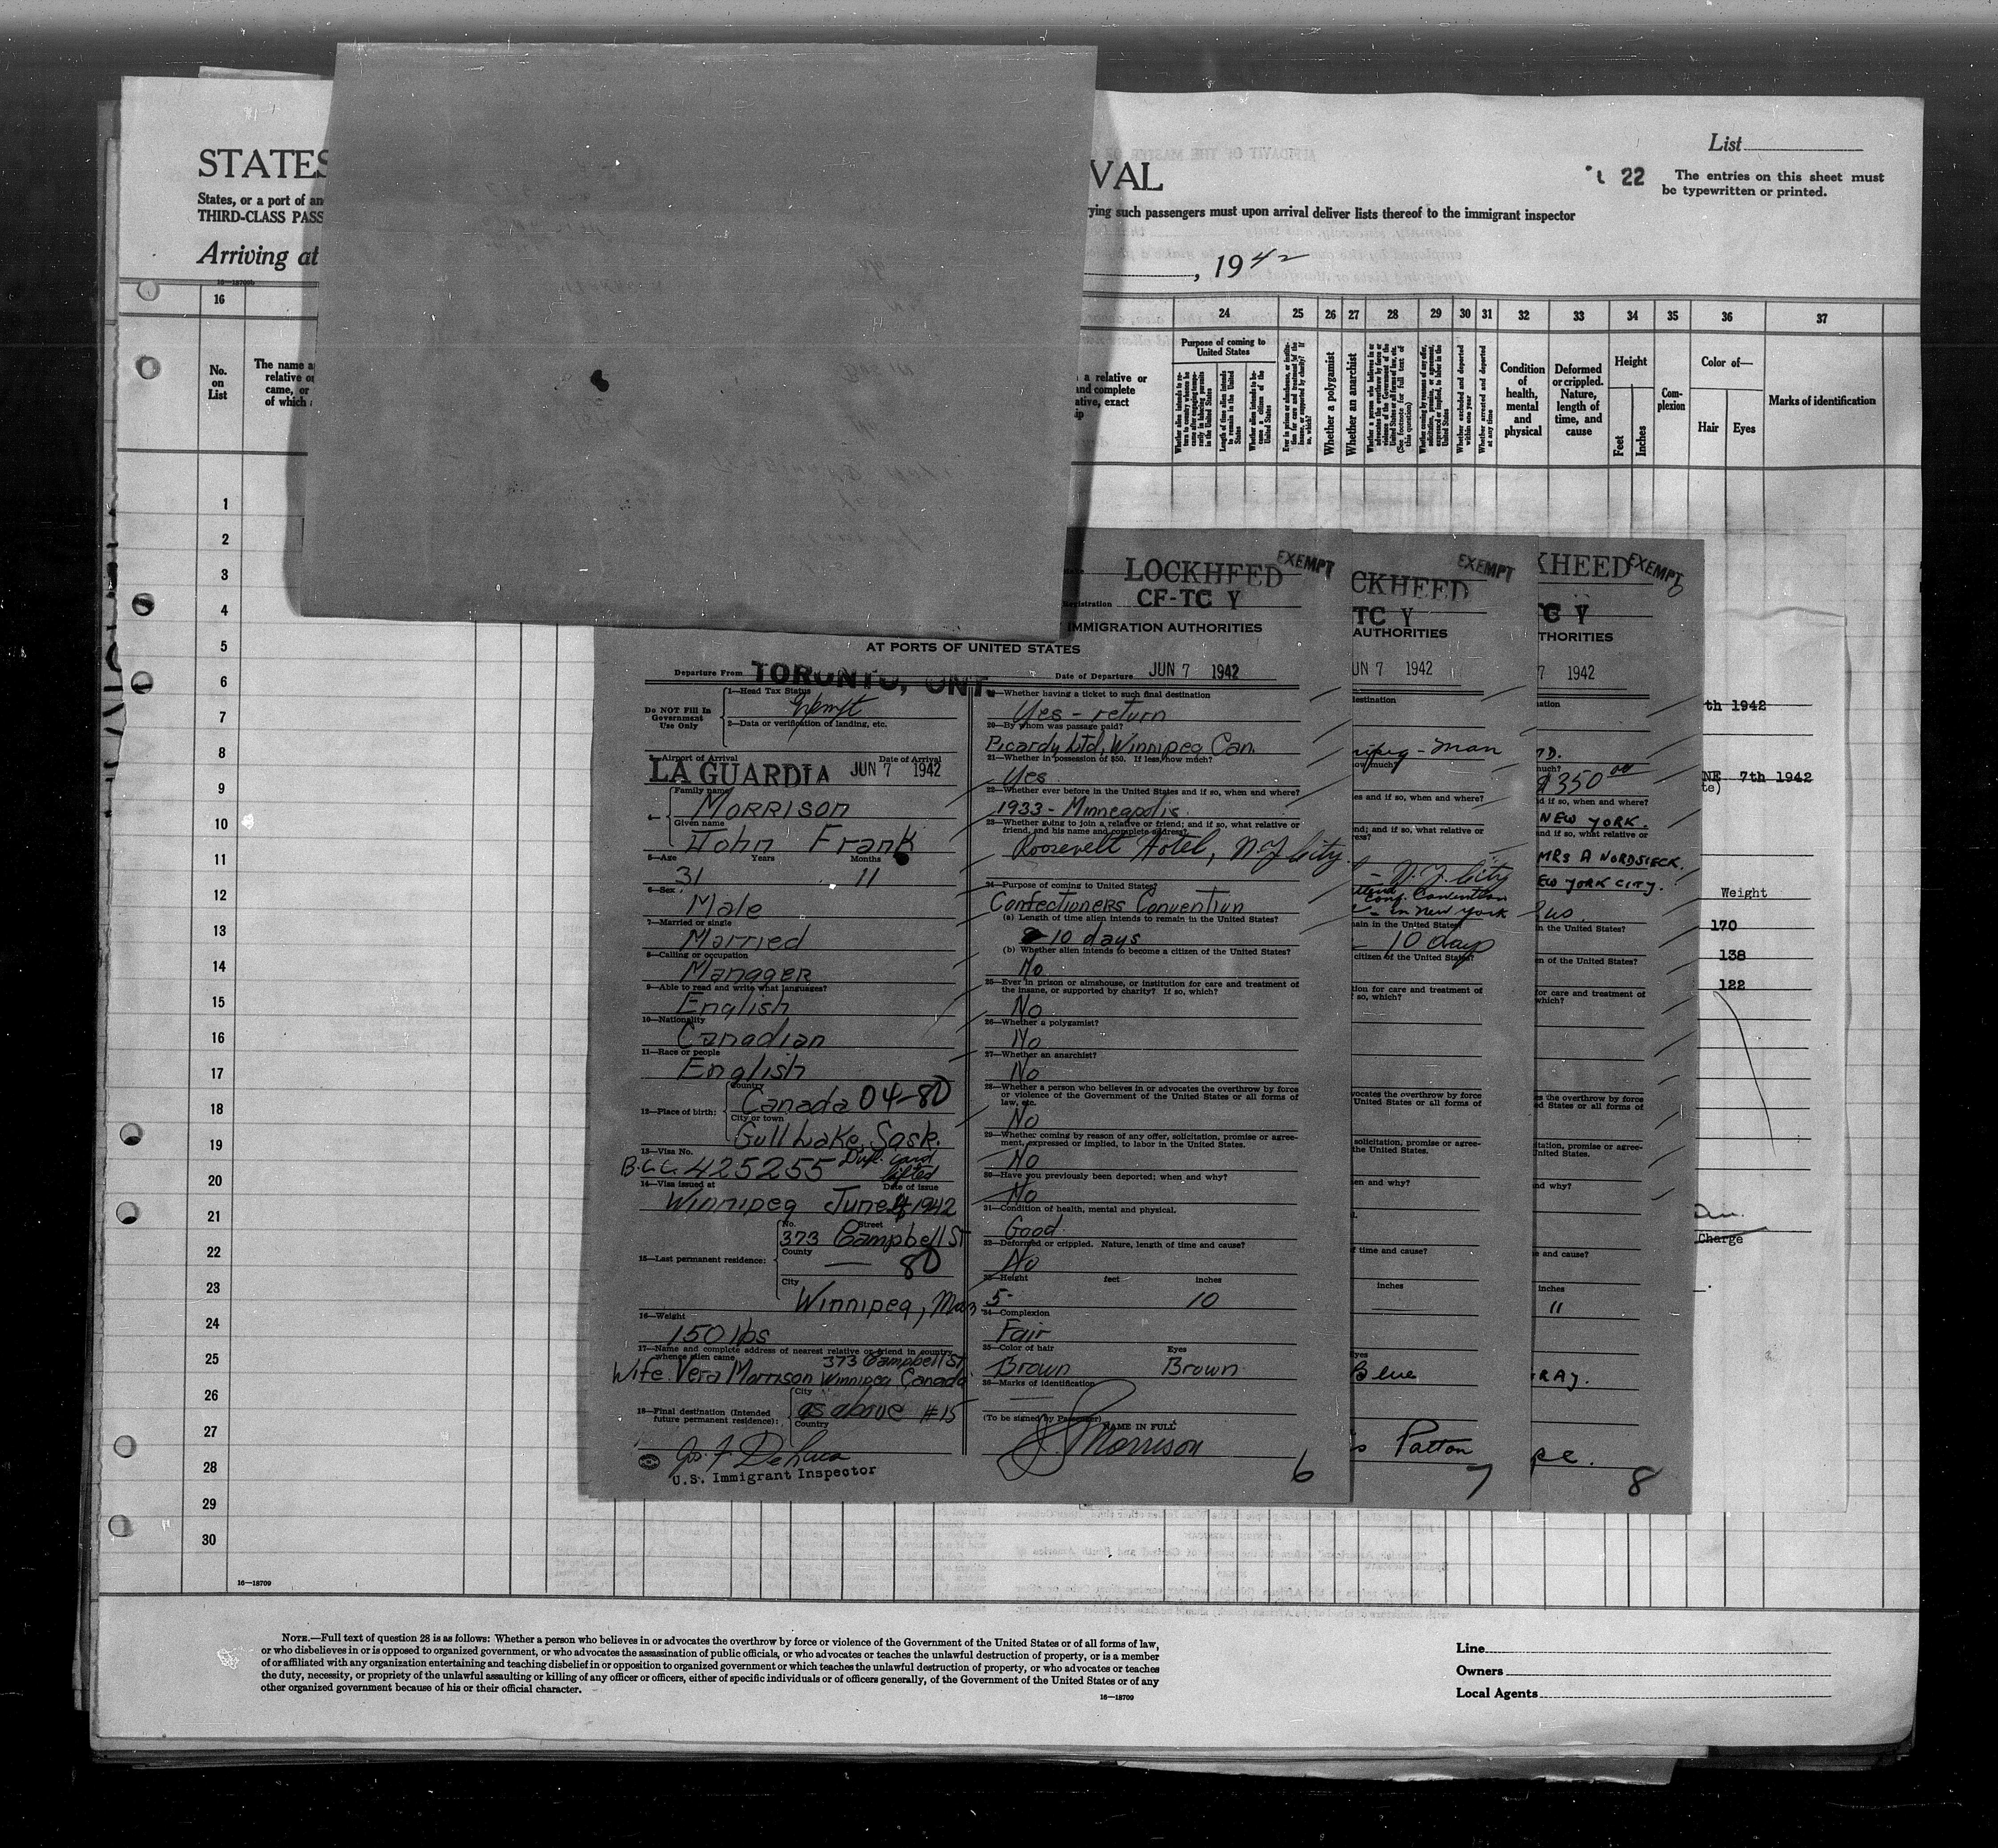 STATES
VAL
List
22
The entries on this sheet must
be typewritten or printed.
States, or a port of an
THIRD-CLASS PASS
ying such passengers must upon arrival deliver lists thereof to the immigrant inspector
Arriving at
, 1942
16
24 25 26 27 28 29 30 31 32 33 34 35 36 37
No.
on
List
The name a
relative or
came, or
of which
a relative or
and complete
ative, exact
ip
Purpose of coming to
United States
Whether a polygamist
Whether an anarchist
Condition
of
health,
mental
and
physical
Deformed
or crippled.
Nature,
length of
time, and
cause
Height
Feet
Inches
Com-
plexion
Color of—
Hair
Eyes
Marks of identification
1
2
3
4
5
6
7
8
9
10
11
12
13
14
15
16
17
18
19
20
21
22
23
24
25
26
27
28
29
30
16—18709
LOCKHEED
EXEMPT
Registration CF-TC Y
IMMIGRATION AUTHORITIES
AT PORTS OF UNITED STATES
Departure From TORONTO, ONT.
Date of Departure JUN 7 1942
Do NOT Fill In
Government
Use Only
1—Head Tax Status
Exempt
2—Data or verification of landing, etc.
3—Airport of Arrival
Date of Arrival
LA GUARDIA JUN 7 1942
4—
Family name
MORRISON
Given name
John Frank
5—Age Years Months
31 11
6—Sex
Male
7—Married or single
Married
8—Calling or occupation
Manager
9—Able to read and write what languages?
English
10—Nationality
Canadian
11—Race or people
English
12—Place of birth:
Country
Canada 04-80
City or town
Gull Lake, Sask.
13—Visa No.
B.C.C. 425255 Dupl. card
lifted
14—Visa issued at
Date of issue
Winnipeg June 4 1942
15—Last permanent residence:
No. Street
373 Campbell St
County
— 80
City
Winnipeg, Man
16—Weight
150 lbs
17—Name and complete address of nearest relative or friend in country
whence alien came
373 Campbell St,
Wife. Vera Morrison Winnipeg Canada
18—Final destination (Intended
future permanent residence):
City
as above #15
Country
Jos. F DeLuca
U.S. Immigrant Inspector
19—Whether having a ticket to such final destination
Yes - return
20—By whom was passage paid?
Picardy Ltd, Winnipeg Can.
21—Whether in possession of $50. If less, how much?
Yes
22—Whether ever before in the United States and if so, when and where?
1933 - Minneapolis
23—Whether going to join a relative or friend; and if so, what relative or
friend, and his name and complete address?
Roosevelt Hotel, N.Y City
24—Purpose of coming to United States?
Confectioners Convention
(a) Length of time alien intends to remain in the United States?
10 days
(b) Whether alien intends to become a citizen of the United States?
No
25—Ever in prison or almshouse, or institution for care and treatment of
the insane, or supported by charity? If so, which?
No
26—Whether a polygamist?
No
27—Whether an anarchist?
No
28—Whether a person who believes in or advocates the overthrow by force
or violence of the Government of the United States or all forms of
law, etc.
No
29—Whether coming by reason of any offer, solicitation, promise or agree-
ment, expressed or implied, to labor in the United States.
No
30—Have you previously been deported; when and why?
No
31—Condition of health, mental and physical.
Good
32—Deformed or crippled. Nature, length of time and cause?
No
33—Height feet inches
5- 10
34—Complexion
Fair
35—Color of hair Eyes
Brown Brown
36—Marks of identification
(To be signed by Passenger)
NAME IN FULL
J. Morrison
6
CKHEED
EXEMPT
TC Y
AUTHORITIES
UN 7 1942
destination
nipeg - Man
ow much?
es and if so, when and where?
nd; and if so, what relative or
ress?
- N.Y. City
attend
Conf. Convention
- in New York
main in the United States?
- 10 days
citizen of the United States?
tion for care and treatment of
so, which?
vocates the overthrow by force
United States or all forms of
solicitation, promise or agree-
the United States.
en and why?
f time and cause?
inches
Eyes
Blue
Patton
7
KHEED
EXEMPT
TC Y
THORITIES
7 1942
nation
TD.
much?
$350 00
d if so, when and where?
NEW YORK.
and if so, what relative or
MRS A NORDSIECK.
EW YORK CITY.
in the United States?
en of the United States?
for care and treatment of
which?
es the overthrow by force
ed States or all forms of
itation, promise or agree-
United States.
nd why?
e and cause?
inches
11
RAY.
pe.
8
th 1942
NE 7th 1942
te)
Weight
170
138
122
Charge
NOTE.—Full text of question 28 is as follows: Whether a person who believes in or advocates the overthrow by force or violence of the Government of the United States or of all forms of law,
or who disbelieves in or is opposed to organized government, or who advocates the assassination of public officials, or who advocates or teaches the unlawful destruction of property, or is a member
of or affiliated with any organization entertaining and teaching disbelief in or opposition to organized government or which teaches the unlawful destruction of property, or who advocates or teaches
the duty, necessity, or propriety of the unlawful assaulting or killing of any officer or officers, either of specific individuals or of officers generally, of the Government of the United States or of any
other organized government because of his or their official character.
16—18709
Line
Owners
Local Agents